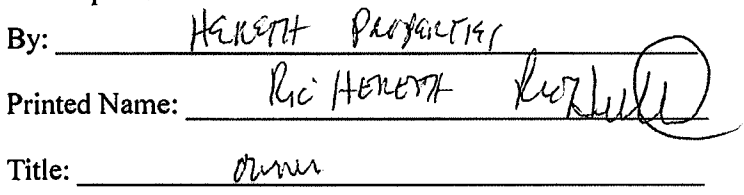 By: HERETH PROPERTIES
Printed Name: Ric HERETH Ric Hereth
Title: owner